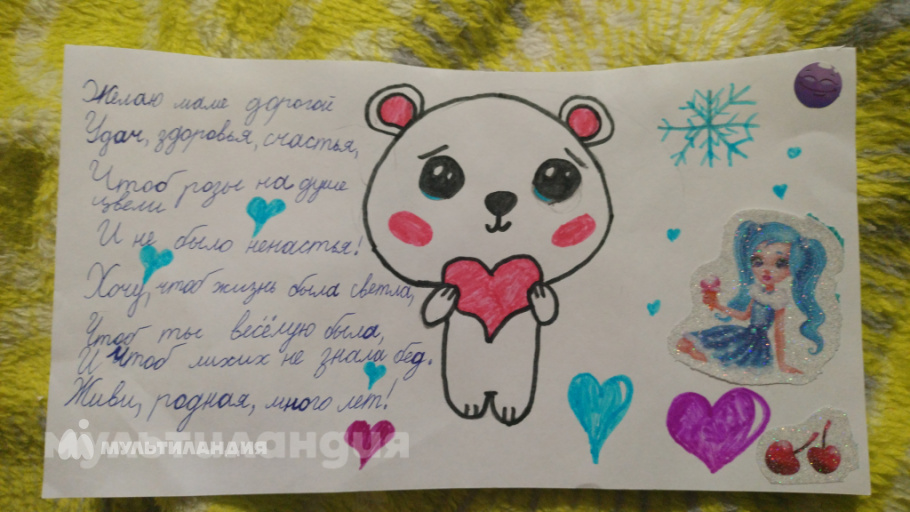 Желаю маме дорогой
Удач, здоровья, счастья,
Чтоб розы на душе
цвели
И не было ненастья!
Хочу, чтоб жизнь была светла,
Чтоб ты весёлую была,
И чтоб лихих не знала бед.
Живи, родная, много лет!
мультиландия
МУЛЬТИЛАНДИЯ